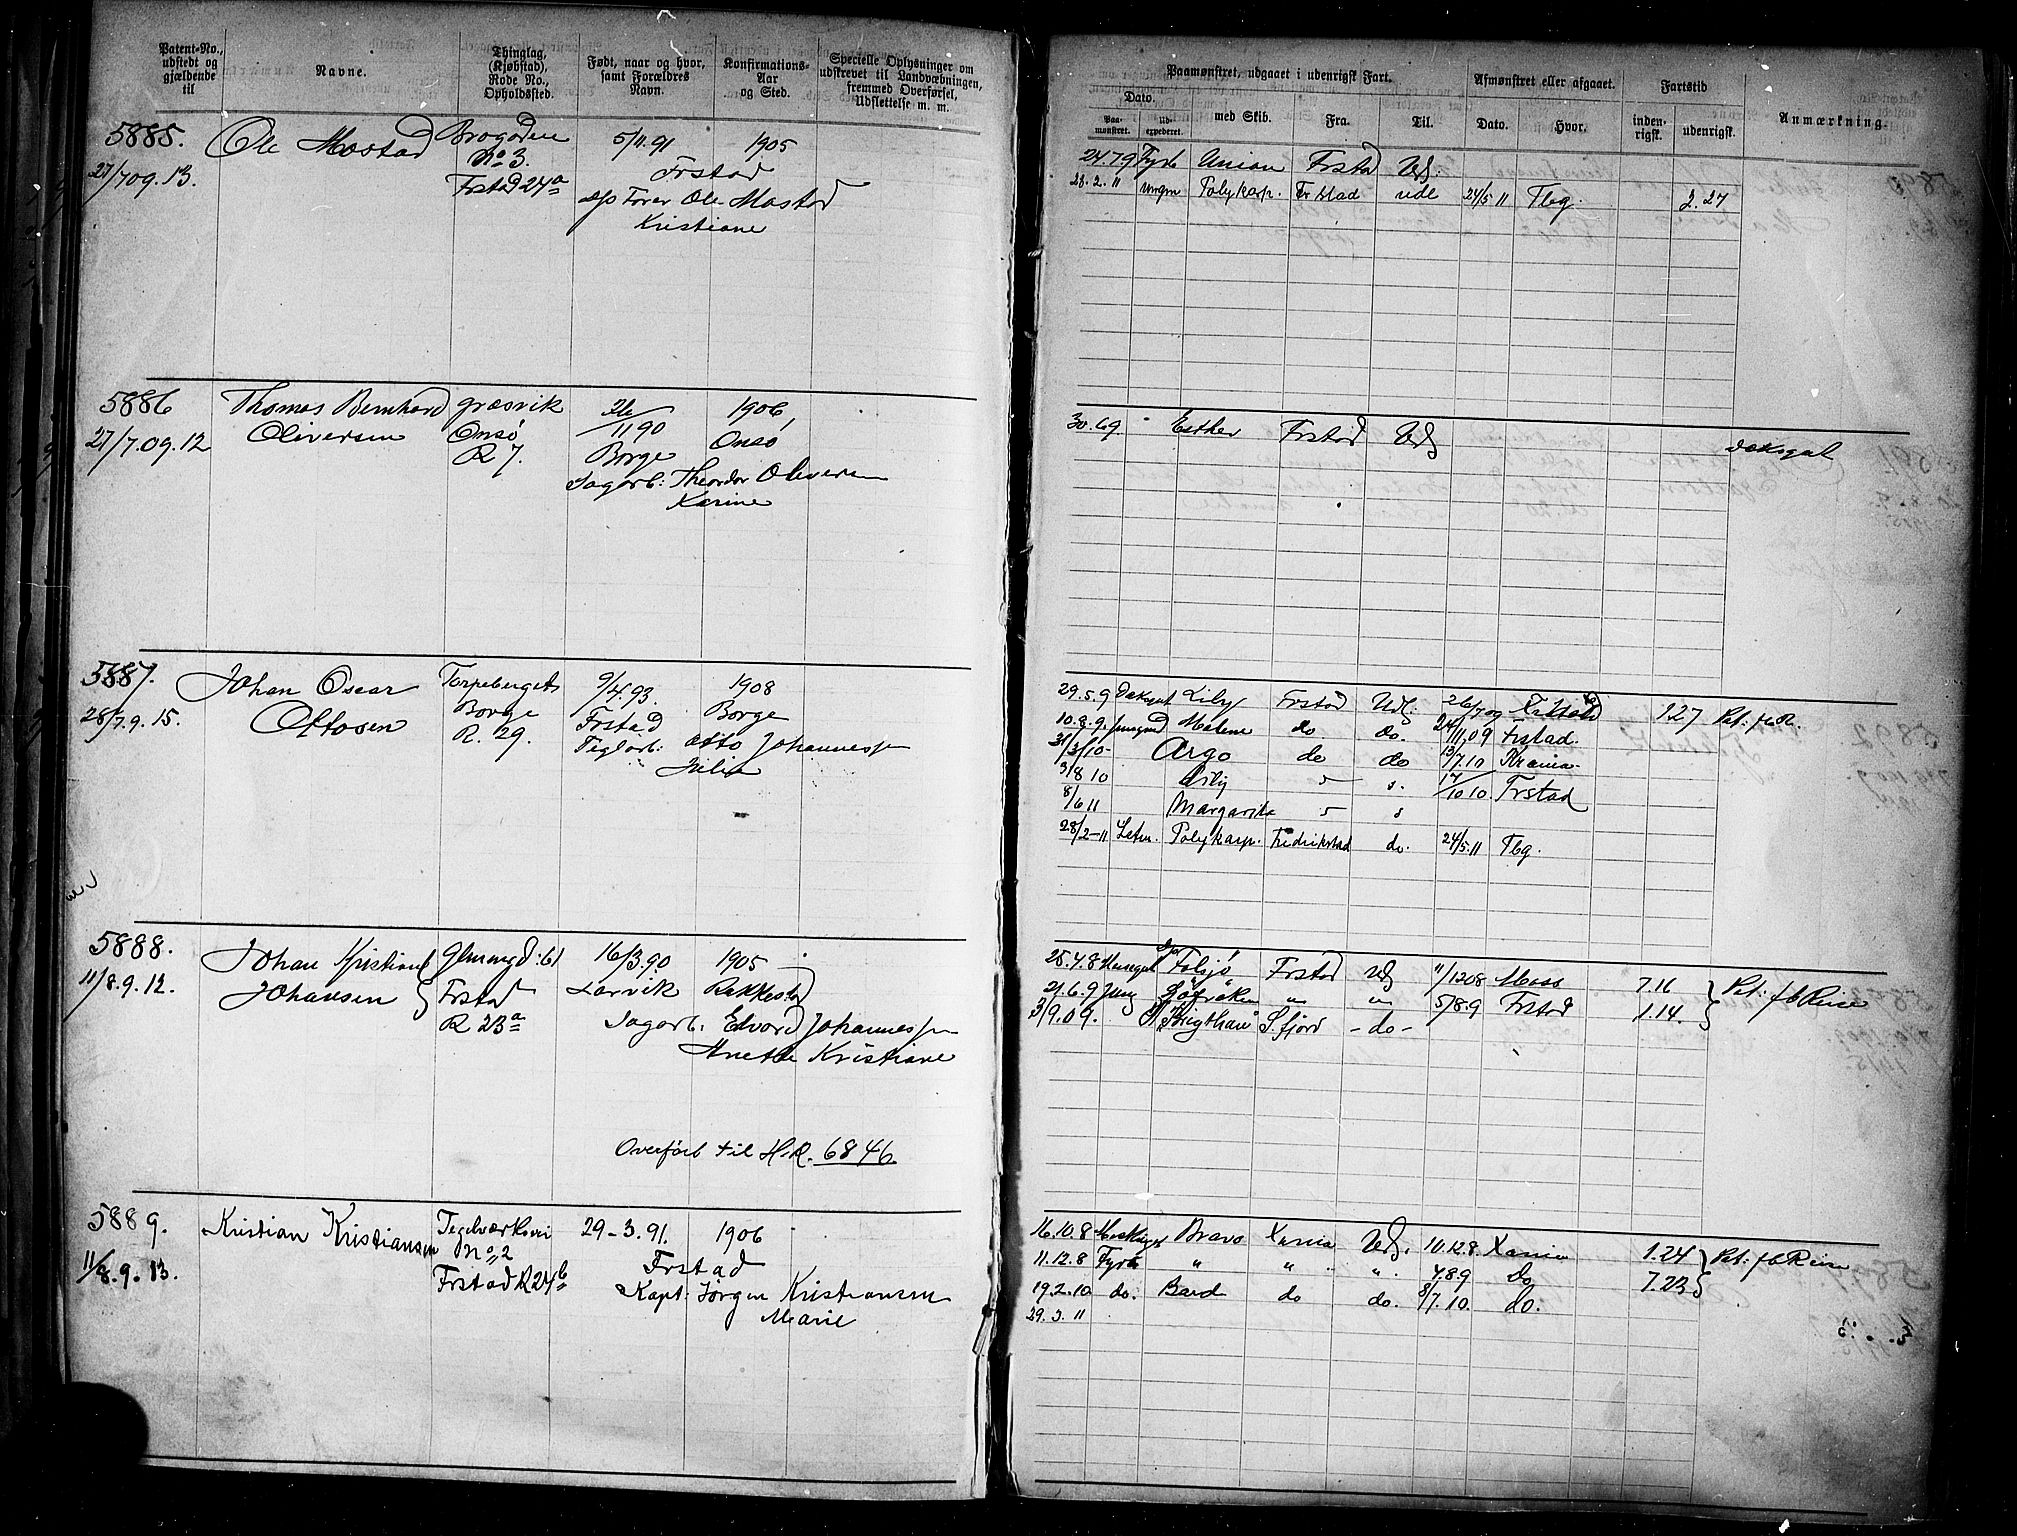 Patent-No., udstedt og gjældende til
Navne.
Thinglag, (Kjøbstad), Rode No., Opholdssted.
Født, naar og hvor, samt Forældres Navn.
Konfirmations-Aar og Sted.
Specielle Oplysninger om udskrevet til Landvæbningen, fremmed Overførsel, Udslettelse m. m.
5885. Ole Mostad
27/7 09. 13.
No 3.
Frstad 24a
5/11.91 1905
Frstad
Ole Mostad
Kristiane
5886 Thomas Bernhard Græsvik 26/11 90 1906,
27/7.09.12 Oliversen Onsø Onsø
R 7. Borge
Dagarb: Theordor Oliversen
Karine
5887. Johan Oscar 9/4.93 1908
28/7.9.15. Ottosen Borge Frstad Borge
R. 29. Teglarb: Otto Johannessen
Julie
5888. Johan Kristian 16/3.90 1905
11/8.9.12. Johansen Frstad Larvik Rakkestad
R 23a Dagarb: Edvard Johannessen
Anette Kristiane
Overført til H.R. 6846
5889. Kristian Kristiansen 29-3.91. 1906
11/8.9.13. No 2
Frstad R 24b Frstad
Kapt: Jørgen Kristiansen
Marie
Paamønstret, udgaaet i udenrigsk Fart.
Afmønstret eller afgaaet.
Fartstid
Anmærkning.
Dato.
Paa-mønstret.
Ud-expederet.
med Skib.
Fra.
Til.
Dato.
Hvor.
inden-rigsk.
udenrigsk.
24.7.9 Fyrb Union Frstad Udl.
28.2.11 Ungm Polykarp. Frstad udl 24/5 11 Tbg. 2.27
30.6.9. Esther Frstad Udl
Daksgut
29.5.9 Daksgut Lily Frstad Udl. 26/7 09 1.27
10.8.9. Malene do do. 24/11.09 Frstad.
31/3 10 Argo do do 13/7.10 Krania.
3/8 10 Lily 17/10 10. Frstad
8/6 11 Margarita
28/2-11 Letm. Polykarp. Fredrikstad do. 24/5.11 Tbg.
28.4.8 Frstad Udl 11/12 08 Moss 7.16 Pat: f b Reise
21.6.9 Jung " " 5/8.9 Frstad 1.14.
3/9.09. S.fjord -do-
16.10.8 Bravo Xania Udl. 10.12.8. Xania 1.24 Pat: f b Reise
11.12.8 Fyrb " " " 4.8.9 do 7.23
19.2.10 do. Bard do do. 8/7.10. do.
29.3.11